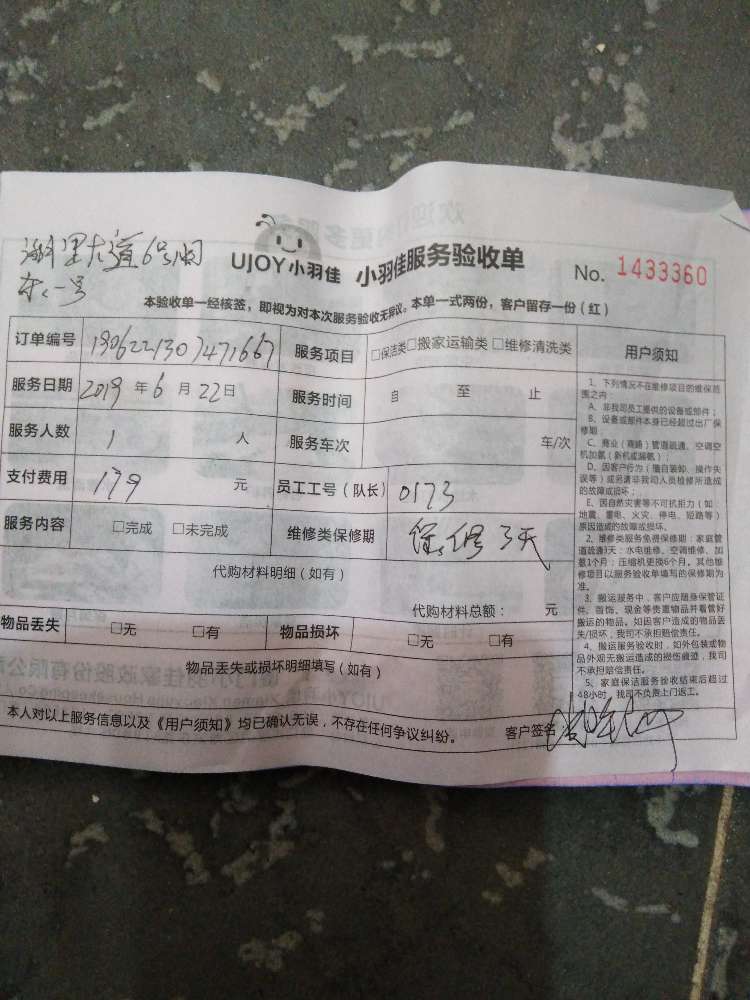 湖里大道6号
UJOY小羽佳 小羽佳服务验收单 No. 1433360
本验收单一经核签，即视为对本次服务验收无异议。本单一式两份，客户留存一份（红）
订单编号 1906221307471667 服务项目 □保洁类□搬家运输类 □维修清洗类
服务日期 2019 年 6 月 22日 服务时间 自 至 止
服务人数 1 人 服务车次 车/次
支付费用 179 元 员工工号（队长） 0173
服务内容 □完成 □未完成 维修类保修期 保修3天
代购材料明细（如有）
代购材料总额： 元
物品丢失 □无 □有 物品损坏 □无 □有
物品丢失或损坏明细填写（如有）
本人对以上服务信息以及《用户须知》均已确认无误，不存在任何争议纠纷。 客户签名
用户须知
1、下列情况不在维修项目的维保范
围之内：
A、非我司员工提供的设备或部件；
B、设备或部件本身已经超过出厂保
修期
C、商业（商路）管道疏通、空调空
机加氨（新机或漏氨）；
D、因客户行为（擅自装卸、操作失
误等）或另请非我司人员检修所造成
的故障或损坏；
E、因自然灾害等不可抗拒力（如
地震、雷电、火灾、停电、短路等）
原因造成的故障或损坏。
2、维修类服务免费保修期：家庭管
道疏通3天；水电维修、空调维修、加
氨1个月；压缩机更换6个月，其他维
修项目以服务验收单填写的保修期为
准。
3、搬运服务中，客户应随身保管证
件、首饰、现金等贵重物品并看管好
搬运的物品。如因客户造成的物品丢
失/损坏，我司不承担赔偿责任。
4、搬运服务验收时，如外包装或物
品外观无搬运造成的损伤痕迹，我司
不承担赔偿责任。
5、家庭保洁服务验收结束后超过
48小时，我司不负责上门返工。